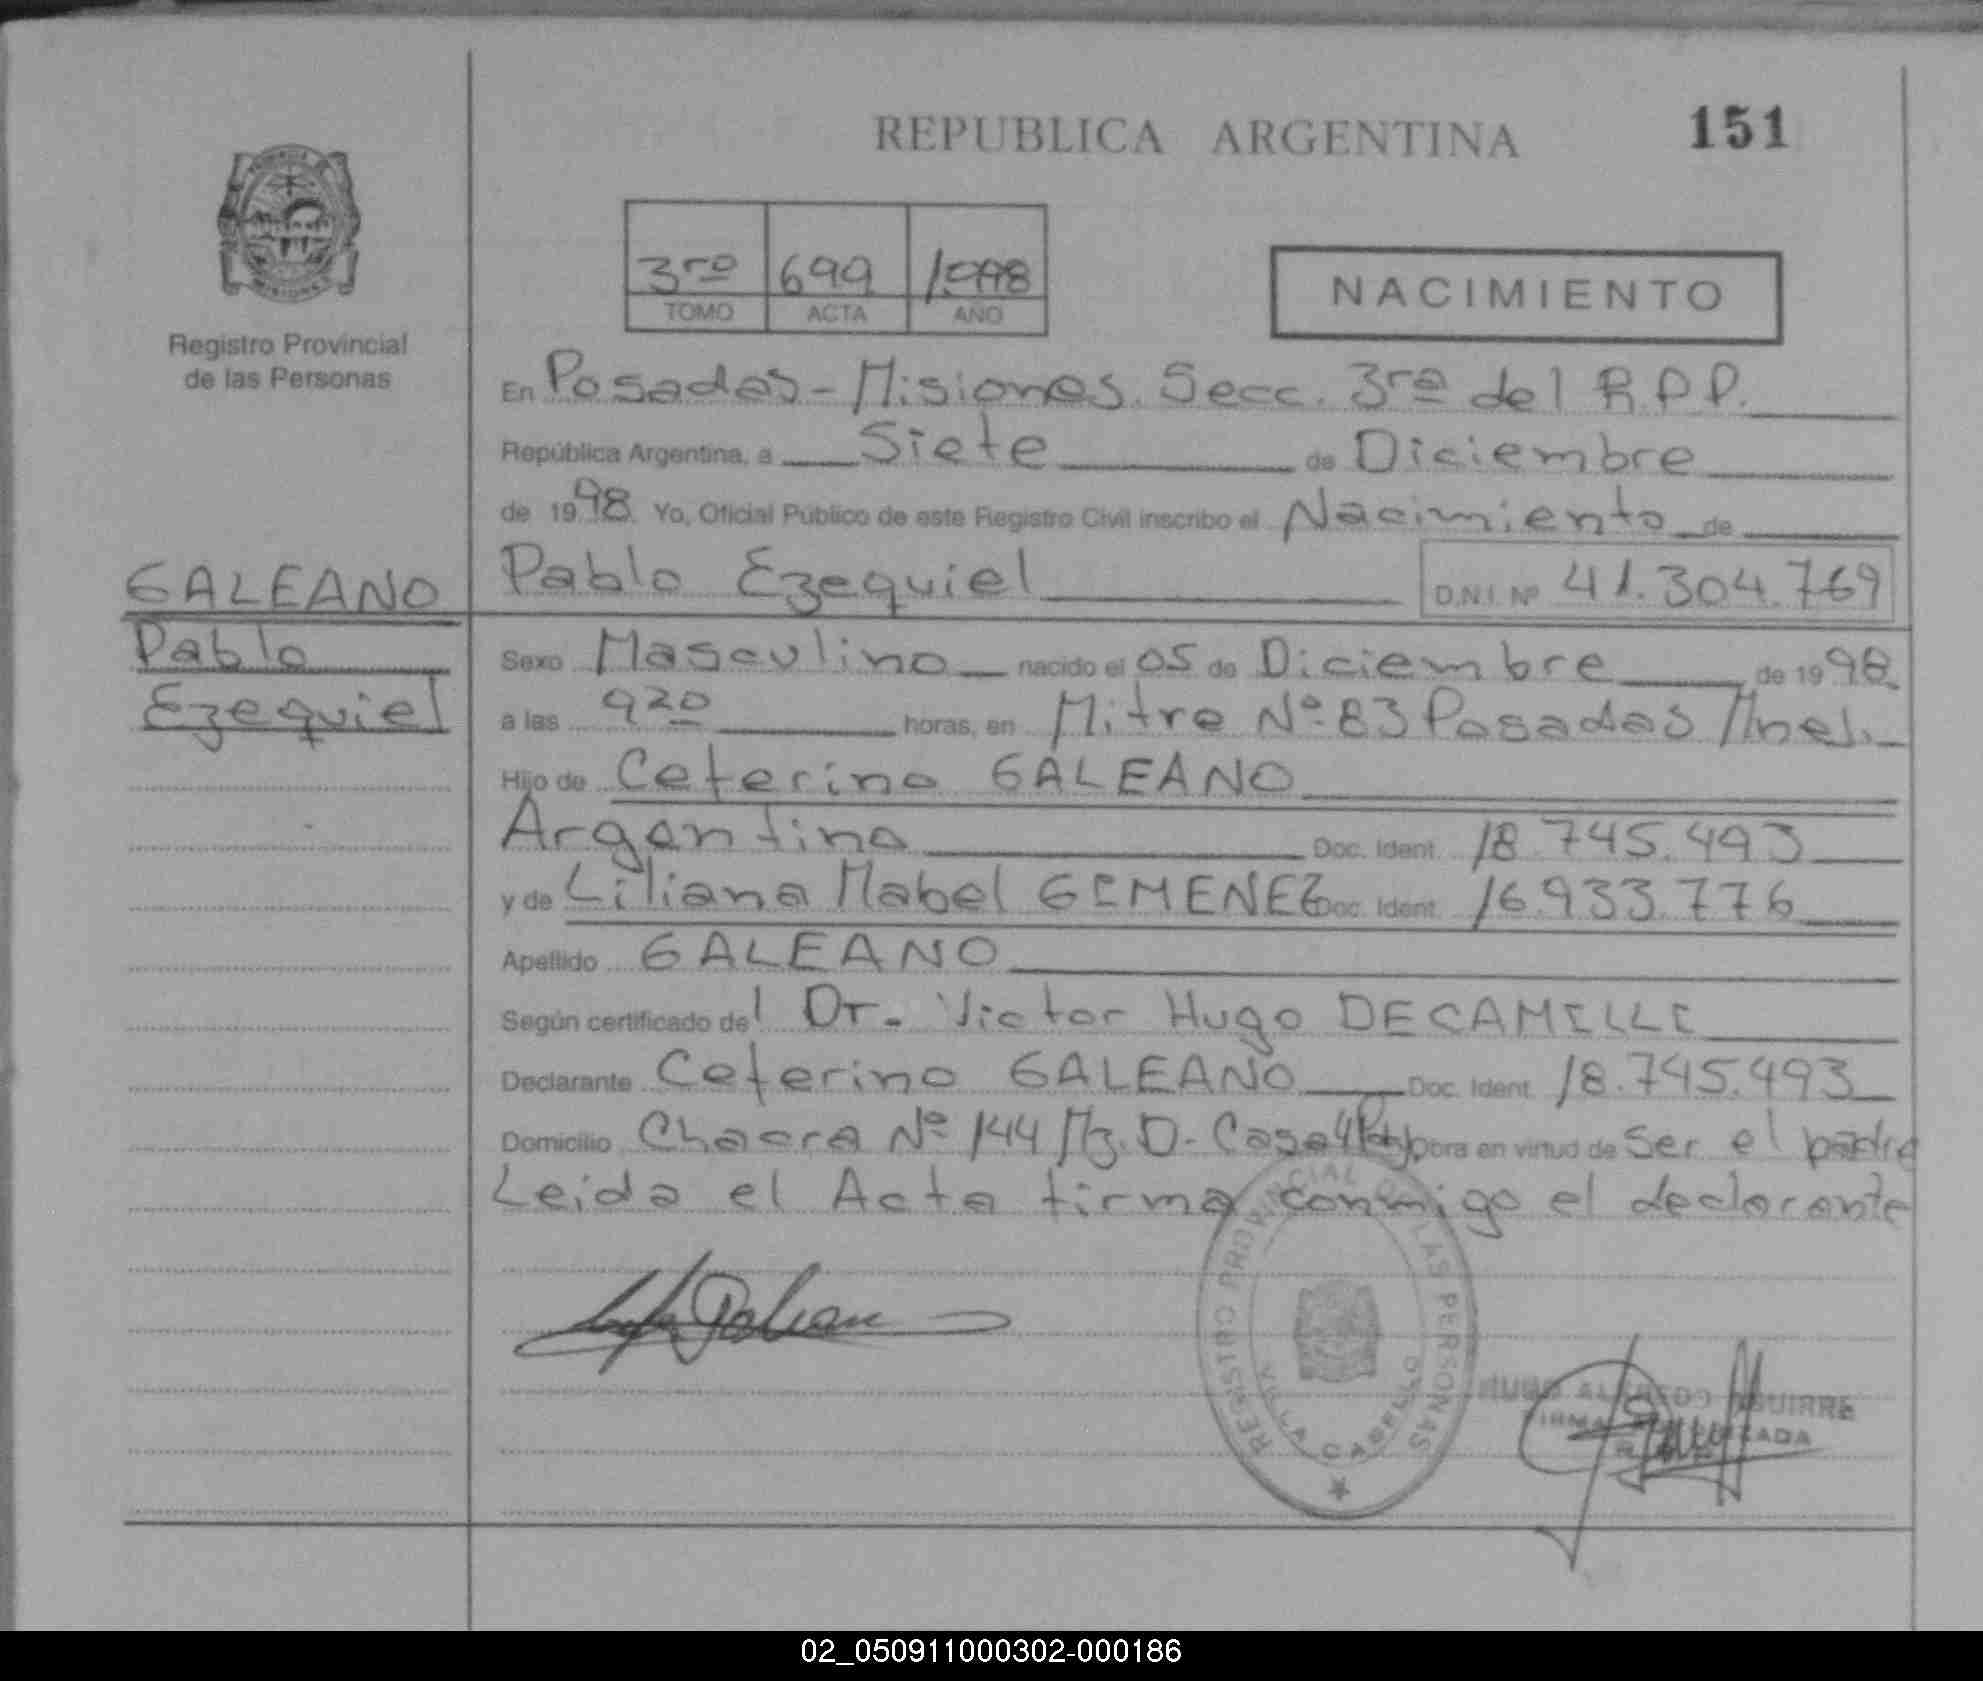 REPUBLICA ARGENTINA
151
3ro 699 1.998
TOMO ACTA AÑO
NACIMIENTO
Registro Provincial
de las Personas
En Posadas - Misiones. Secc. 3ra del R.P.P.
República Argentina, a Siete de Diciembre
de 1998 Yo, Oficial Público de este Registro Civil inscribo el Nacimiento de
GALEANO
Pablo
Ezequiel
Pablo Ezequiel D.N.I. Nº 41.304.769
Sexo Masculino nacido el 05 de Diciembre de 1998
a las 920 horas, en Mitre Nº 83 Posadas
Hijo de Ceferino GALEANO
Argentino Doc. Ident. 18.745.493
y de Liliana Mabel GIMENEZ Doc. Ident. 16.933.776
Apellido GALEANO
Según certificado del Dr. Victor Hugo DECAMILLI
Declarante Ceferino GALEANO Doc. Ident. 18.745.493
Domicilio Chacra Nº 144 Mz. D. Casa 4 bora en virtud de ser el padre
Leida el Acta firma conmigo el declarante
REGISTRO PROVINCIAL DE LAS PERSONAS
VILLA CABELLO
HUGO ALFREDO AGUIRRE
FIRMA AUTORIZADA
02_050911000302-000186